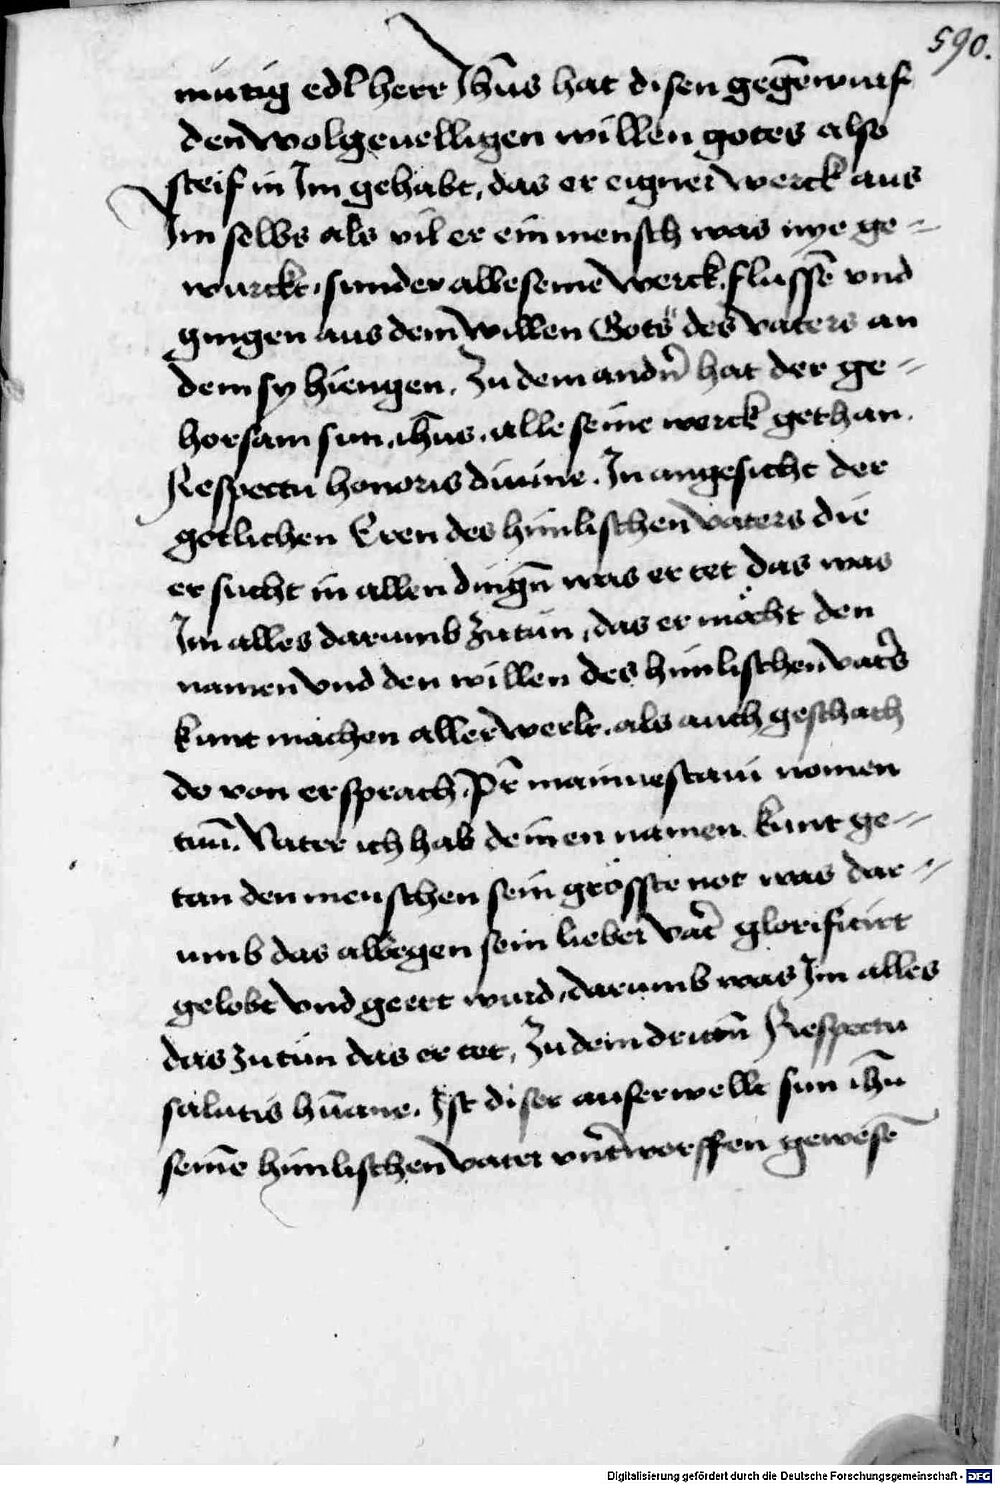 590.
mütig edl herr Jhūs hat disen gegēwurf
den wolgeuelligen willen gotes also
steif in Im gehabt, das er eigner werck aus
Im selbs als vil er ein mensch was nye ge=
wurckt, sunder alle seine werck flussē vnd
gingen aus dem willen Gots des vaters an
dem sy hiengen. Zu dem andn̄ hat der ge=
horsam sun ihūs alle seine werck gethan.
Respectu honoris diuine. In angesicht der
gotlichen Eren des himlischen vaters die
er sucht in allen dingn̄ was er tet das was
Im alles darumb zutun, das er möcht den
namen vnd den willen des himlischen vat̄s
kunt machen aller werlt, als auch geschach
do von er sprach. Pr̄ manifestaui nomen
tuū. Vater ich hab deinen namen kunt ge=
tan den menschen sein grösste not was dar=
umb das allwegen sein lieber vat̄ glorificirt
gelobt vnd geert wurd, darumb was Im alles
das zutun das er tet, Zu dem drittn̄ Respectu
salutis hūane. Ist diser auserwellt sun ihū
seinē himlischen vater vnt̄worffen gewesē
Digitalisierung gefördert durch die Deutsche Forschungsgemeinschaft - DFG